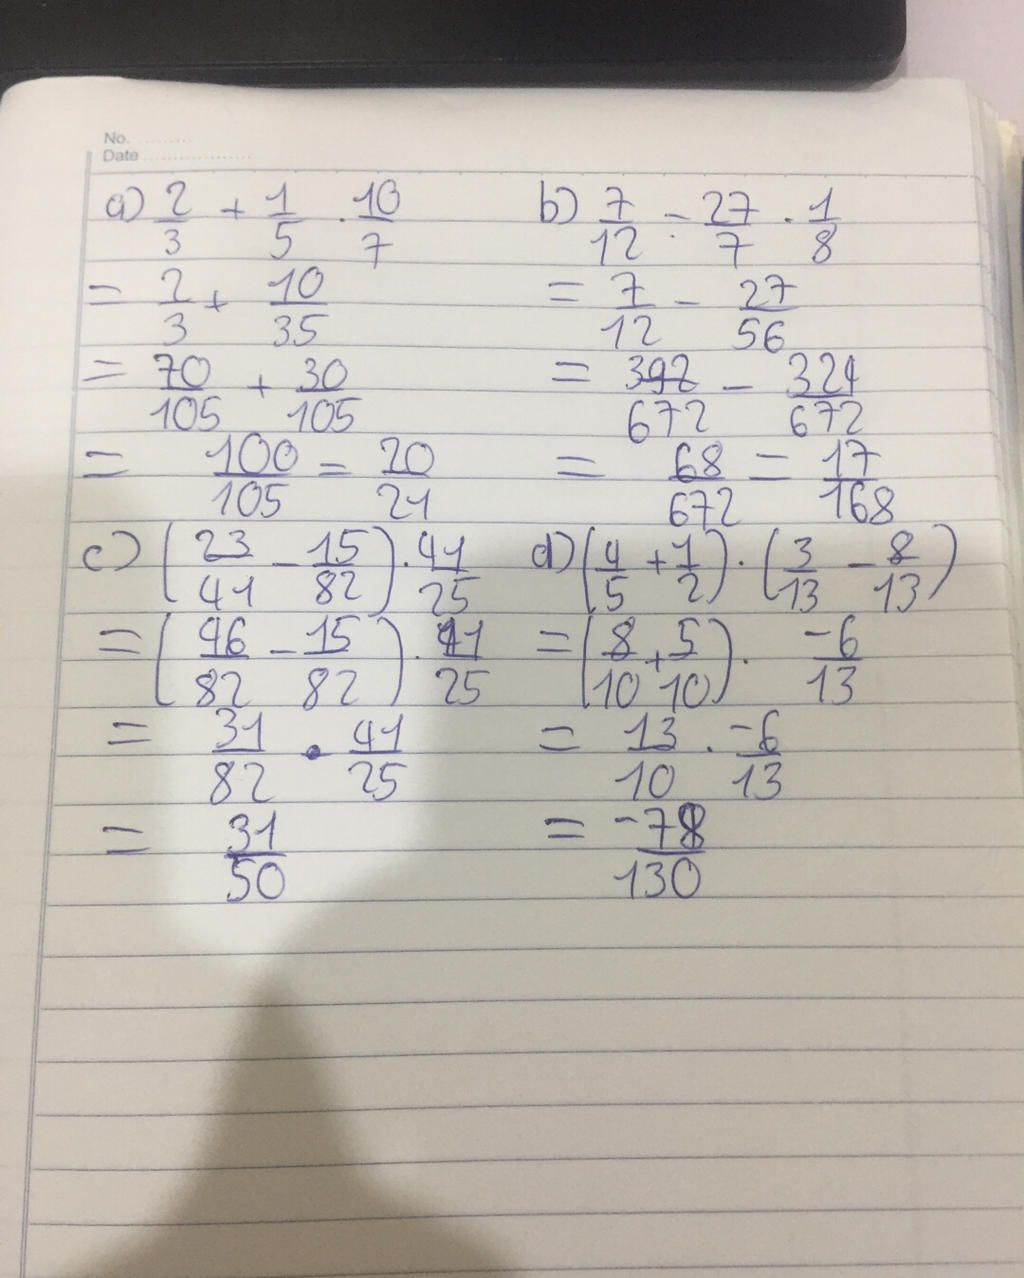 No. ..........
Date ....................
a) 2/3 + 1/5 . 10/7
= 2/3 + 10/35
= 70/105 + 30/105
= 100/105 = 20/21
b) 7/12 - 27/7 . 1/8
= 7/12 - 27/56
= 392/672 - 324/672
= 68/672 = 17/168
c) (23/41 - 15/82) . 41/25
= (46/82 - 15/82) . 41/25
= 31/82 . 41/25
= 31/50
d) (4/5 + 1/2) . (3/13 - 8/13)
= (8/10 + 5/10) . -6/13
= 13/10 . -6/13
= -78/130